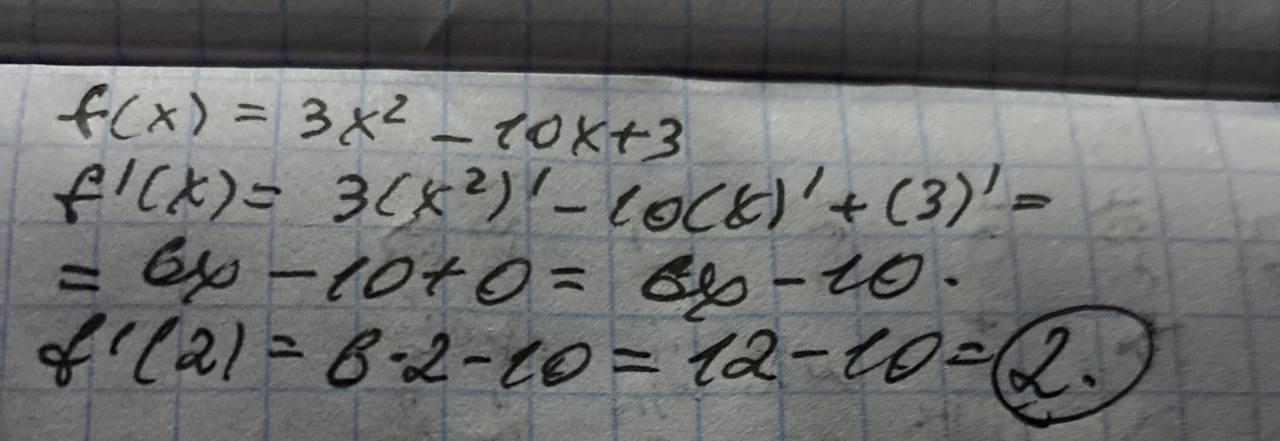 f(x) = 3x² - 10x+3
f'(x)= 3(x²)' - 10(x)' + (3)' =
= 6x - 10 + 0 = 6x - 10.
f'(2) = 6·2 - 10 = 12 - 10 = 2.